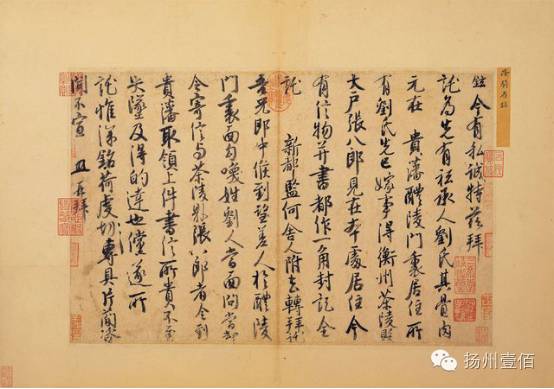 鉉今有私誠特茲拜
託為先有祗承人劉氏其骨肉
元在 貴藩醴陵門裏居住所
有劉氏先已嫁事得衡州茶陵縣
大戶張八郎見在本處居住今
有信物并書都作一角封記全
託 新都監何舍人附去轉拜託
吾兄郎中候到望差人於醴陵
門裏面勾喚姓劉人當面問當却
令寄信与茶陵縣張八郎者令到
貴藩取領上件書信所貴不至
失墜及得的達也儻遂所
託惟深銘荷虔切專具片簡諮
聞不宣 鉉再拜
扬州壹佰